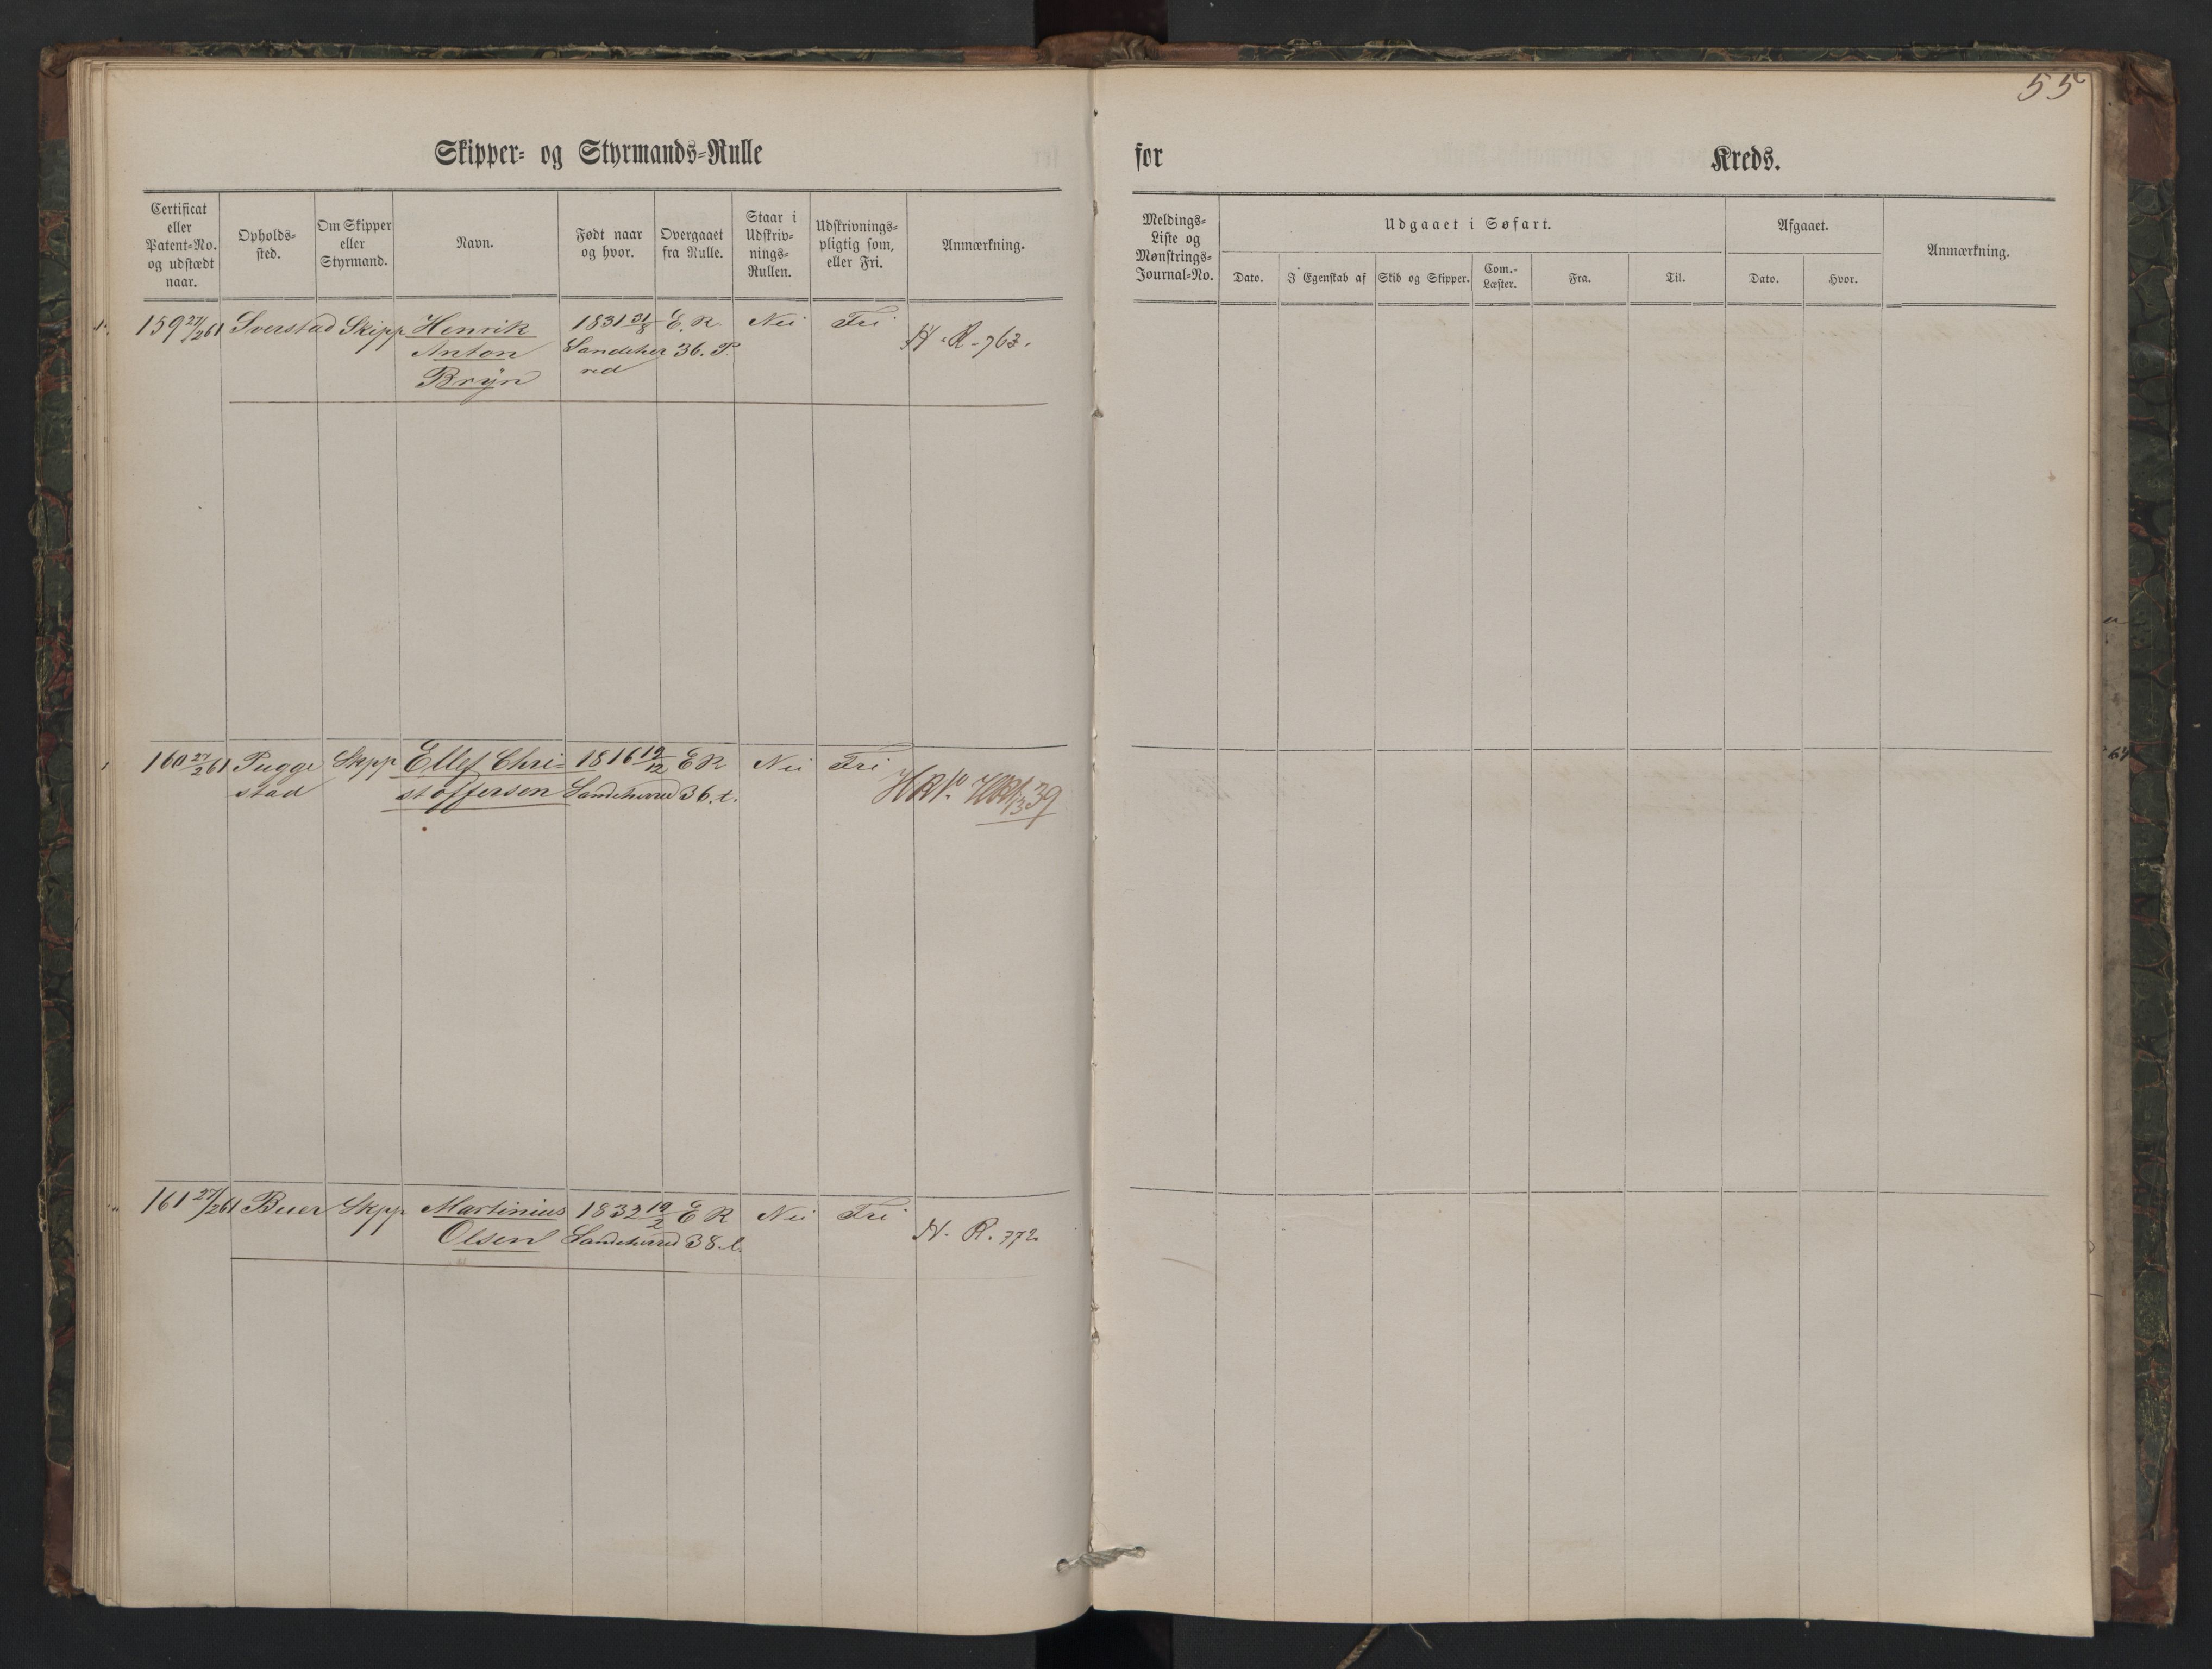 55
Skipper- og Styrmands-Rulle
for
Kreds.
Certificat eller Patent-No. og udstædt naar.
Opholds-sted.
Om Skipper eller Styrmand.
Navn.
Født naar og hvor.
Overgaaet fra Rulle.
Staar i Udskriv-nings-Rullen.
Udskrivnings-pligtig som, eller Fri.
Anmærkning.
Meldings-Liste og Mønstrings-Journal-No.
Udgaaet i Søfart.
Dato.
I Egenskab af
Skib og Skipper.
Com.-Læster.
Fra.
Til.
Afgaaet.
Dato.
Hvor.
Anmærkning.
159 27/2 61 Sverstad Skipp Henrik 1831 31/8 E. R. Nei Fri
Anton Sandeher 36. P. H. R. 763.
Bryn red
160 27/2 61 Pugge Skpp Ellef Chri- 1816 19/12 E R Nei Fri
stad stoffersen Sandeherred 36. t. 39
161 27/2 61 Buer Skpp Martinius 1832 19/2 E R Nei Fri
Olsen Sandeherred 38. l. H. R. 772